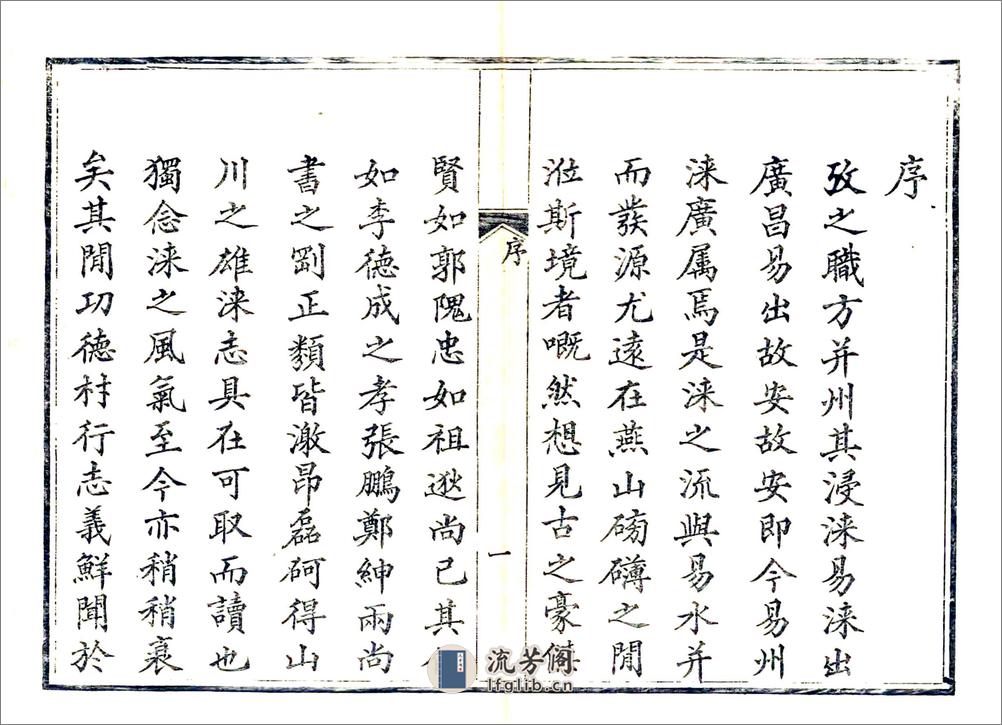 序
攷之職方并州其浸淶易淶出
廣昌易出故安故安即今易州
淶廣属焉是淶之流與易水并
而發源尤遠在燕山磅礴之間
涖斯境者嘅然想見古之豪
序
一
賢如郭隗忠如祖逖尚已其
如李德成之孝張鵬鄭紳兩尚
書之劉正類皆激昂磊砢得山
川之雄淶志具在可取而讀也
獨念淶之風氣至今亦稍稍衰
矣其間功德村行志義鮮聞於
流芳阁
lfglib.cn